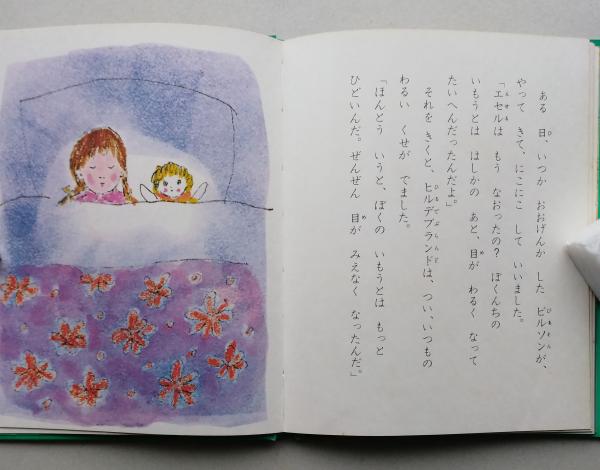 ある 日、いつか おおげんか した ビルソンが、
やって きて、にこにこ して いいました。
「エセルは もう なおったの? ぼくんちの
いもうとは はしかの あと、目が わるく なって
たいへんだったんだよ。」
それを きくと、ヒルデブランドは、つい、いつもの
わるい くせが でました。
「ほんとう いうと、ぼくの いもうとは もっと
ひどいんだ。ぜんぜん 目が みえなく なったんだ。」